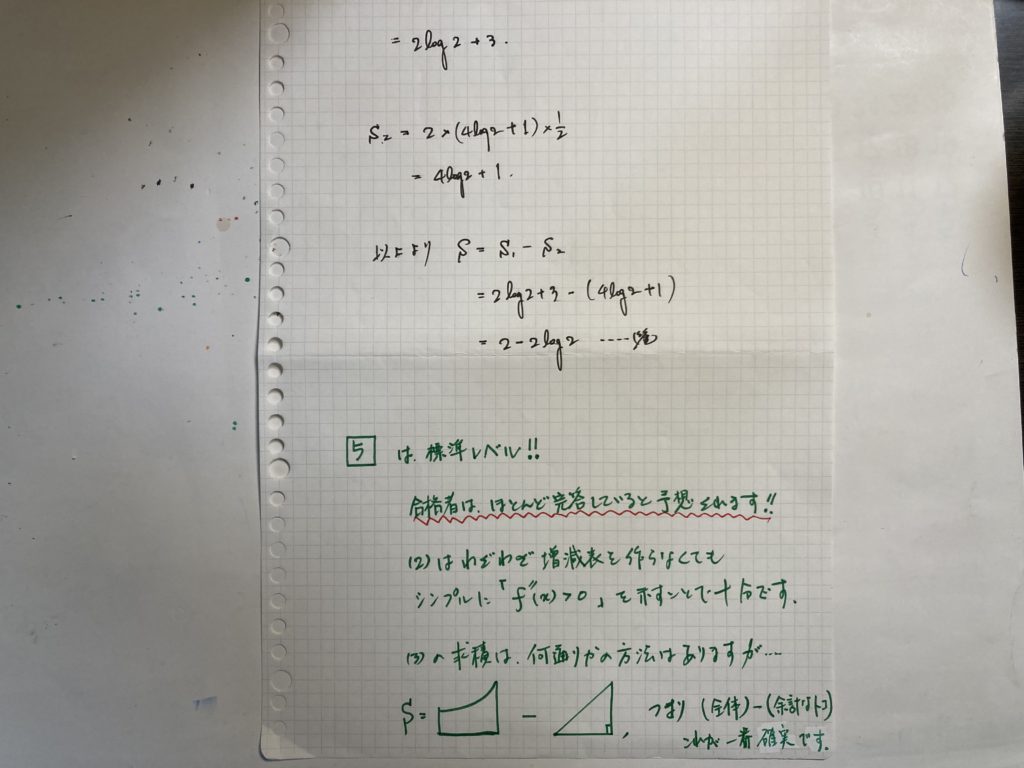 = 2log2+3.
S₂ = 2×(4log2+1)×1/2
= 4log2+1.
以上より S = S₁ - S₂
= 2log2+3-(4log2+1)
= 2-2log2 ……(答)
5 は、標準レベル!!
合格者は、ほとんど完答していると予想されます!!
(2)はわざわざ増減表を作らなくても
シンプルに「f''(x)>0」を示すことで十分です。
(3)の求積は、何通りかの方法はありますが…
S = - , つまり (全体)-(余計なトコ)
これが一番確実です。